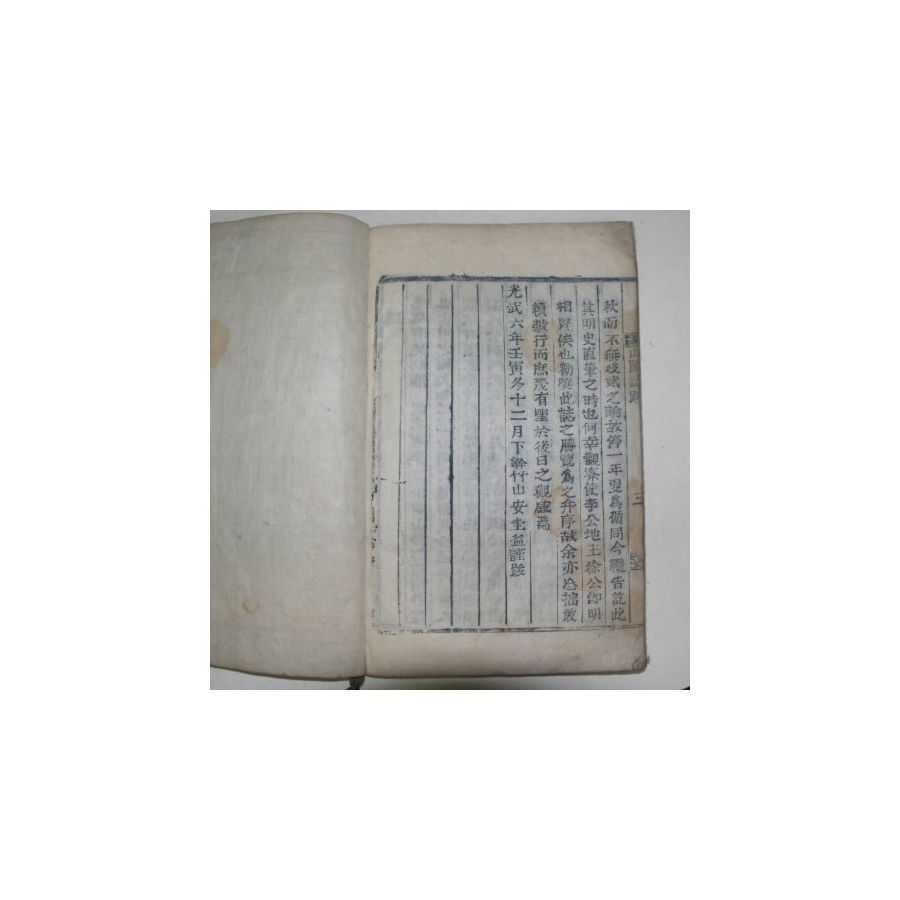 秋而不無岐貳之論故管一年要為備同今纔告訖此
其明史直筆之時也何幸觀察使李公地主徐公卽明
相賢侯也勸奬此誌之勝覽為之弁序故余亦忘拙敢
續數行而庶幾有望於後日之觀感焉
光武六年壬寅冬十二月下澣竹山安圭益謹跋
三